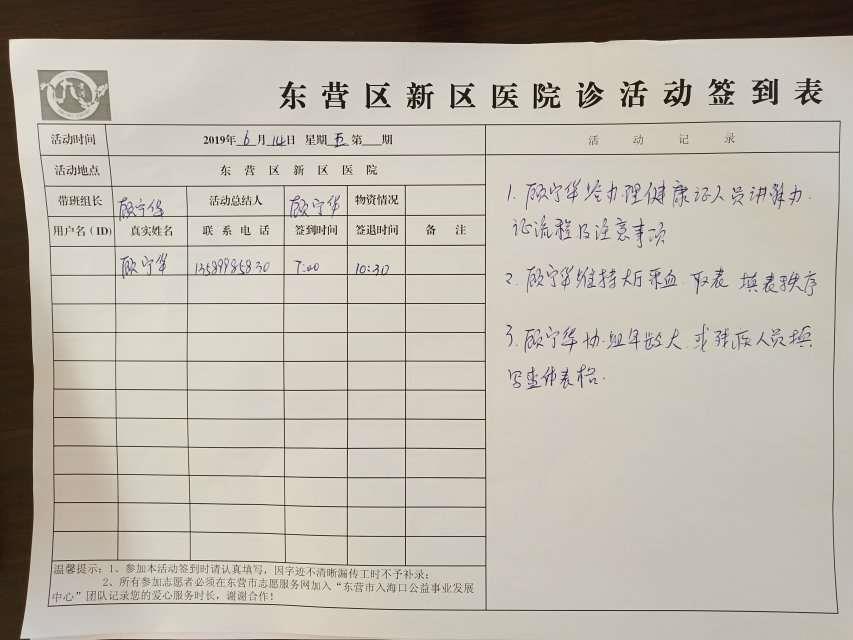 东营区新区医院诊活动签到表
活动时间 2019年 6 月 14 日 星期 五 第 期
活动记录
活动地点 东营区新区医院
带班组长 顾宁华 活动总结人 顾宁华 物资情况
用户名(ID) 真实姓名 联系电话 签到时间 签退时间 备注
顾宁华 13589985830 7:00 10:30
1. 顾宁华给办理健康证人员讲解办
证流程及注意事项
2. 顾宁华维持大厅采血.取表 填表秩序
3. 顾宁华协助年龄大.或残疾人员填
写查体表格.
温馨提示:1、参加本活动签到时请认真填写,因字迹不清晰漏传工时不予补录;
2、所有参加志愿者必须在东营市志愿服务网加入“东营市入海口公益事业发展
中心”团队记录您的爱心服务时长,谢谢合作!